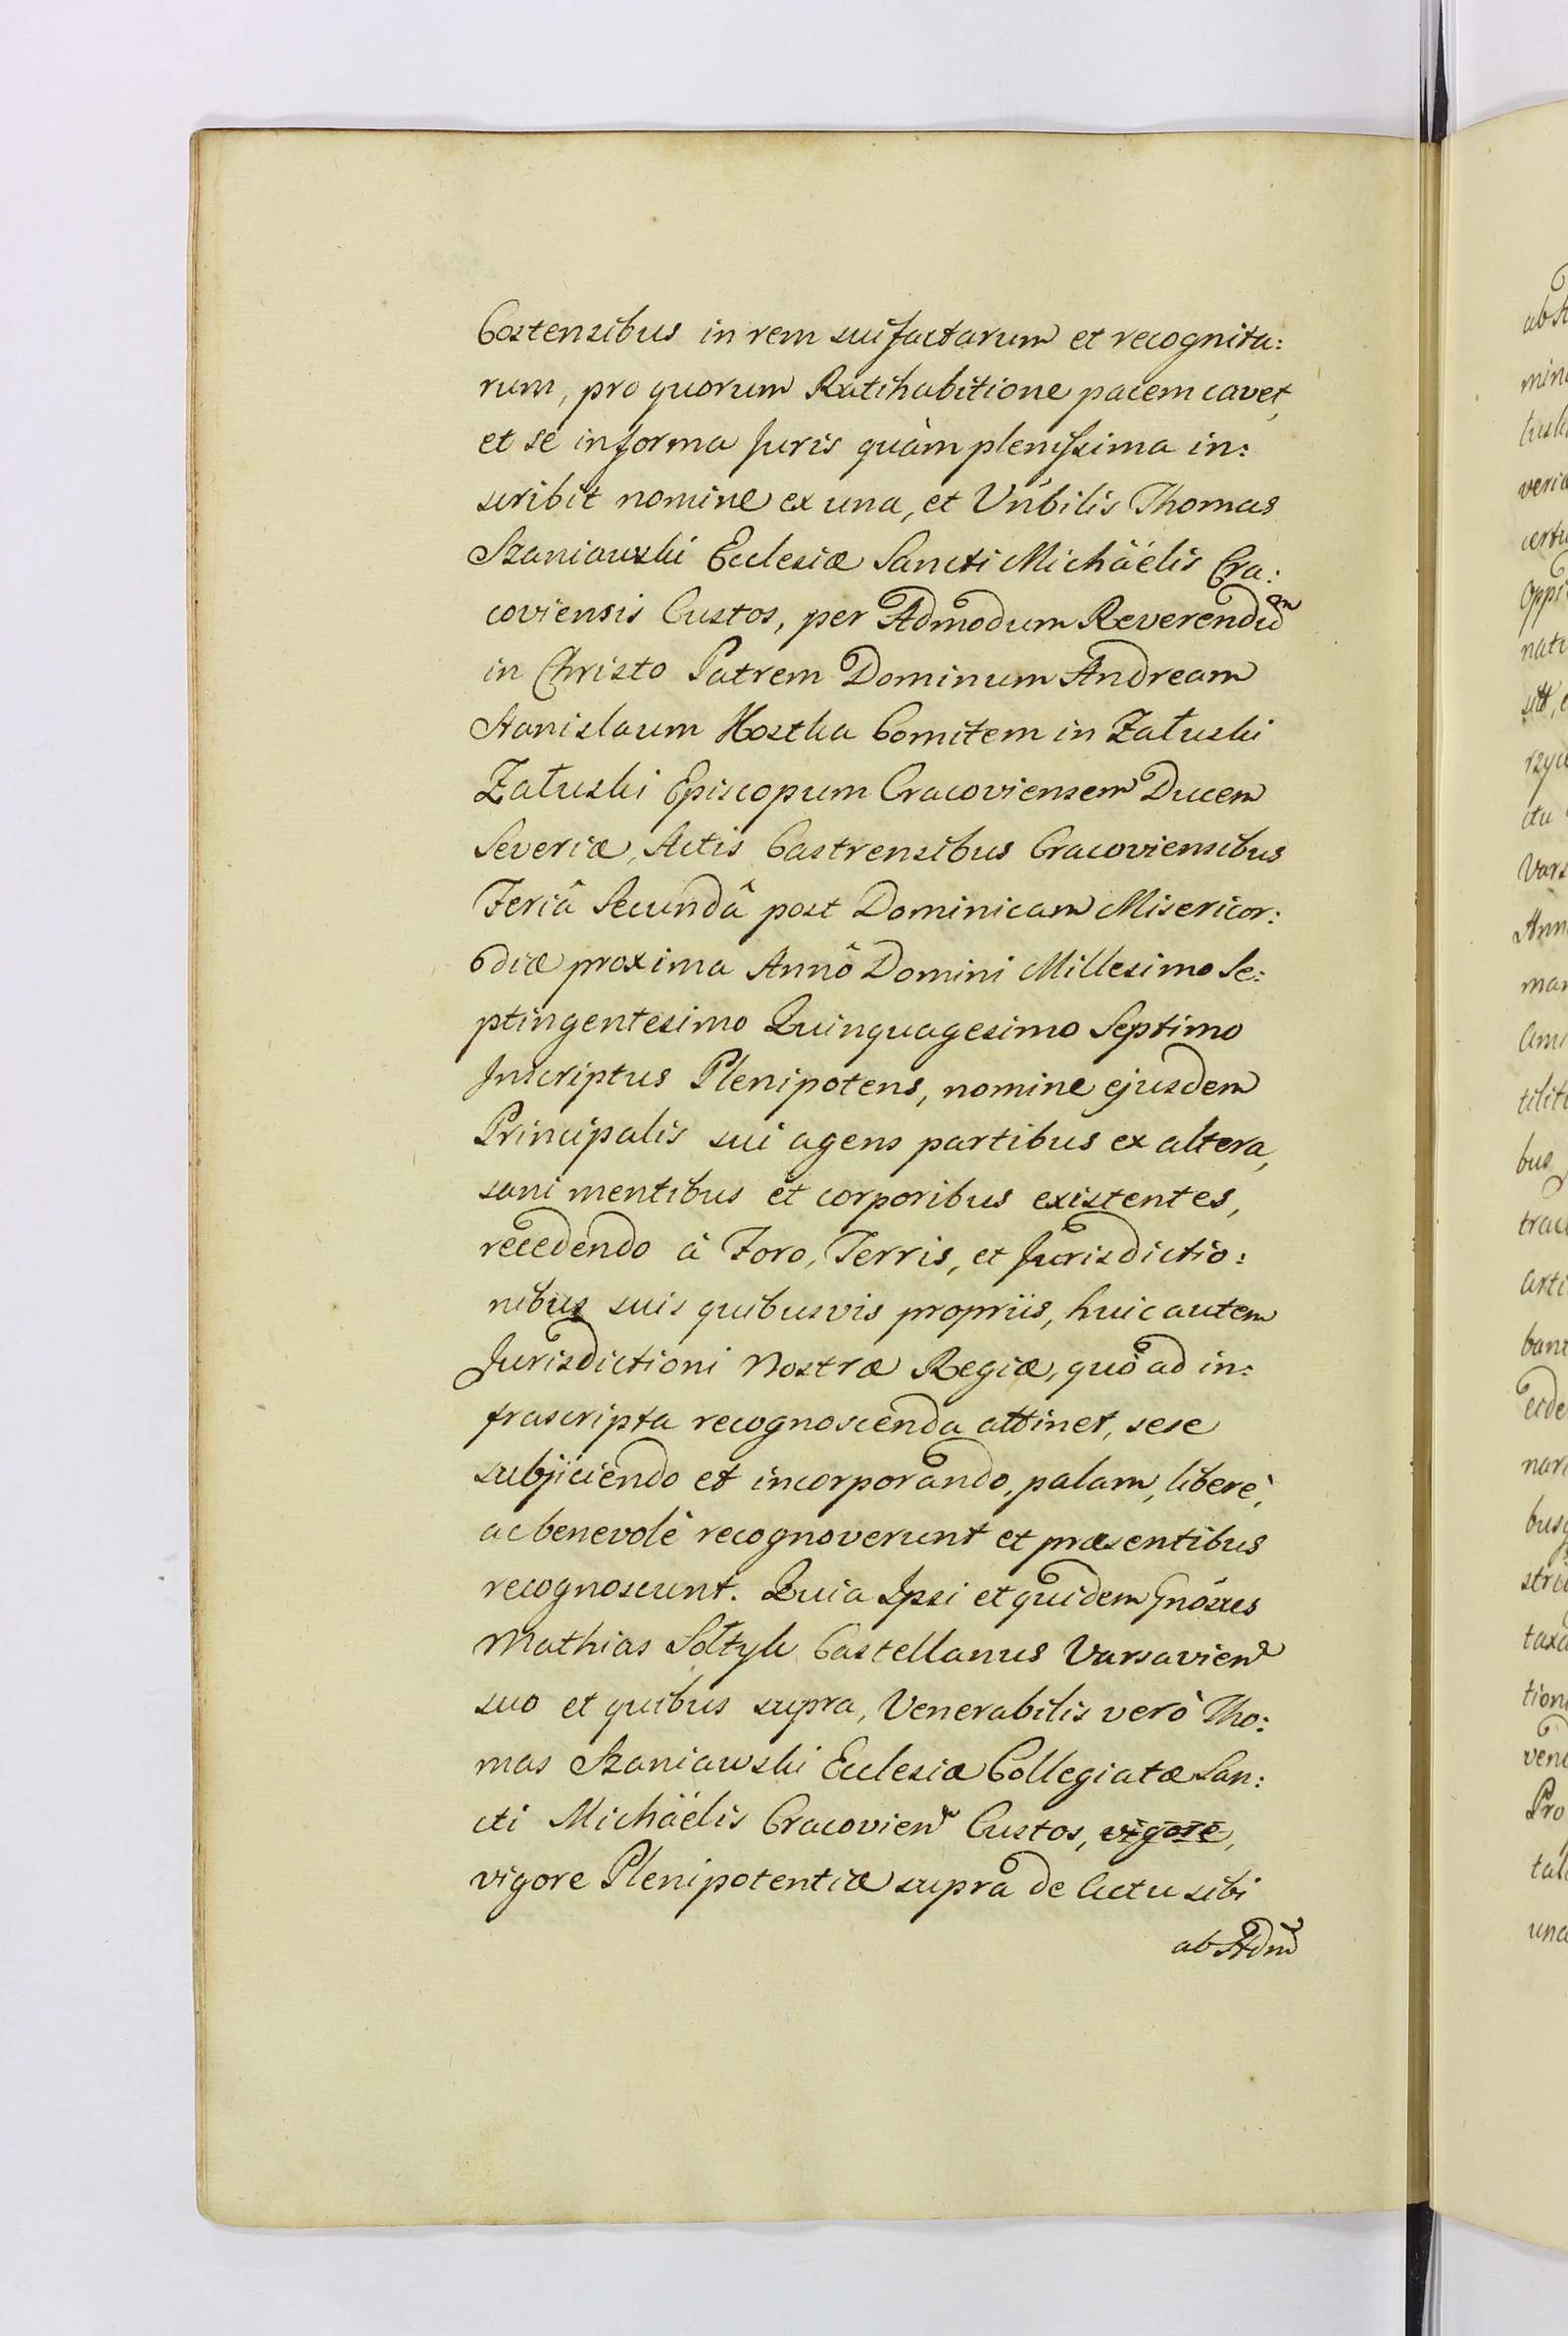 Costensibus in rem sui factarum et recognita:
rum, pro quorum Ratihabitione pacem cavet,
et se in forma Juris quàm plenissima in:
scribit nomine ex una, et Vńbilis Thomas
Szaniawski Ecclesiæ Sancti Michäelis Cra:
coviensis Custos, per Admodum Reverendũm
in Christo Patrem Dominum Andream
Stanislaum Kostka Comitem in Załuski
Załuski Episcopum Cracoviensem Ducem
Severiæ, Actis Castrensibus Cracoviensibus
Feriâ Secundâ post Dominicam Misericor:
diæ proxima Annô Domini Millesimo Se:
ptingentesimo Quinquagesimo Septimo
Inscriptus Plenipotens, nomine ejusdem
Principalis sui agens partibus ex altera,
sani mentibus et corporibus existentes,
recedendo à Foro, Terris, et Jurisdictio:
nibus suis quibusvis propriis, huic autem
Jurisdictioni Nostræ Regiæ, quò ad in:
frascripta recognoscenda attinet, sese
subjiciendo et incorporando, palam, liberè,
ac benevolè recognoverunt et præsentibus
recognoscunt. Quia Ipsi et quidem Gnósus
Mathias Sołtyk Castellanus Varsavien
suo et quibus supra, Venerabilis verò Tho:
mas Szaniawski Ecclesiæ Collegiatæ San:
cti Michäelis Cracovien Custos, vigore,
vigore Plenipotentiæ supra de Actu sibi
ab Adm̃

ab
min
veri
nati
Vars
mar
tilit
bus
trac
arti
bant
nari
taxa
tion
vend
Pro
tali
una